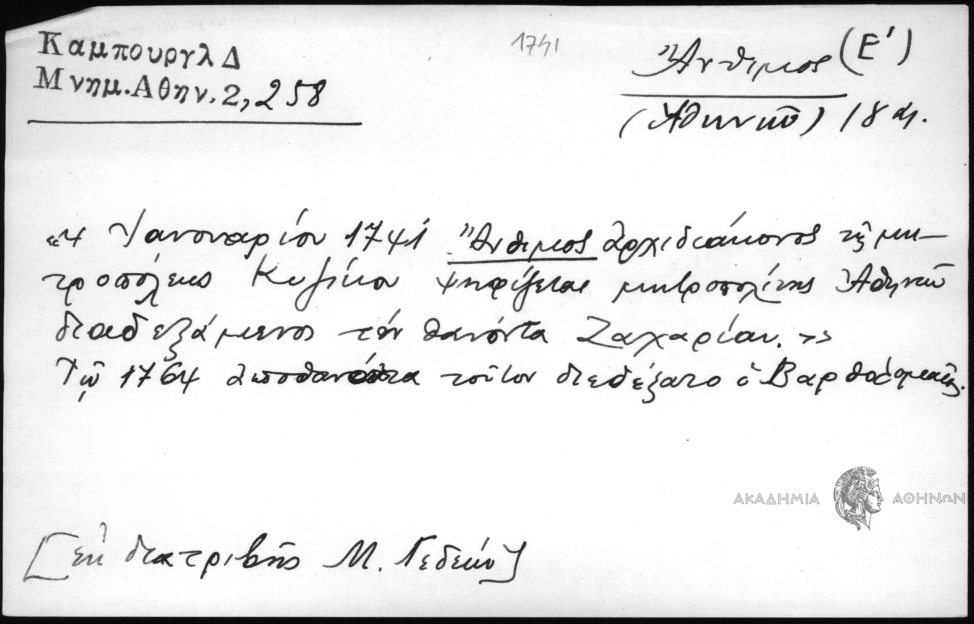 Καμπουργλ Δ
Μνημ. Αθην. 2, 258
1741
Ἄνθιμος (Ε΄)
(Ἀθηνῶν) 18 αι.
«4 Ἰανουαρίου 1741 Ἄνθιμος ἀρχιδιάκονος τῆς μη-
τροπόλεως Κυζίκου ψηφίζεται μητροπολίτης Ἀθηνῶν
διαδεξάμενος τὸν θανόντα Ζαχαρίαν.»
Τῷ 1764 ἀποθανόντα τοῦτον διεδέξατο ὁ Βαρθολομαῖος.
[ἐκ διατριβῆς Μ. Γεδεών]
ΑΚΑΔΗΜΙΑ ΑΘΗΝΩΝ